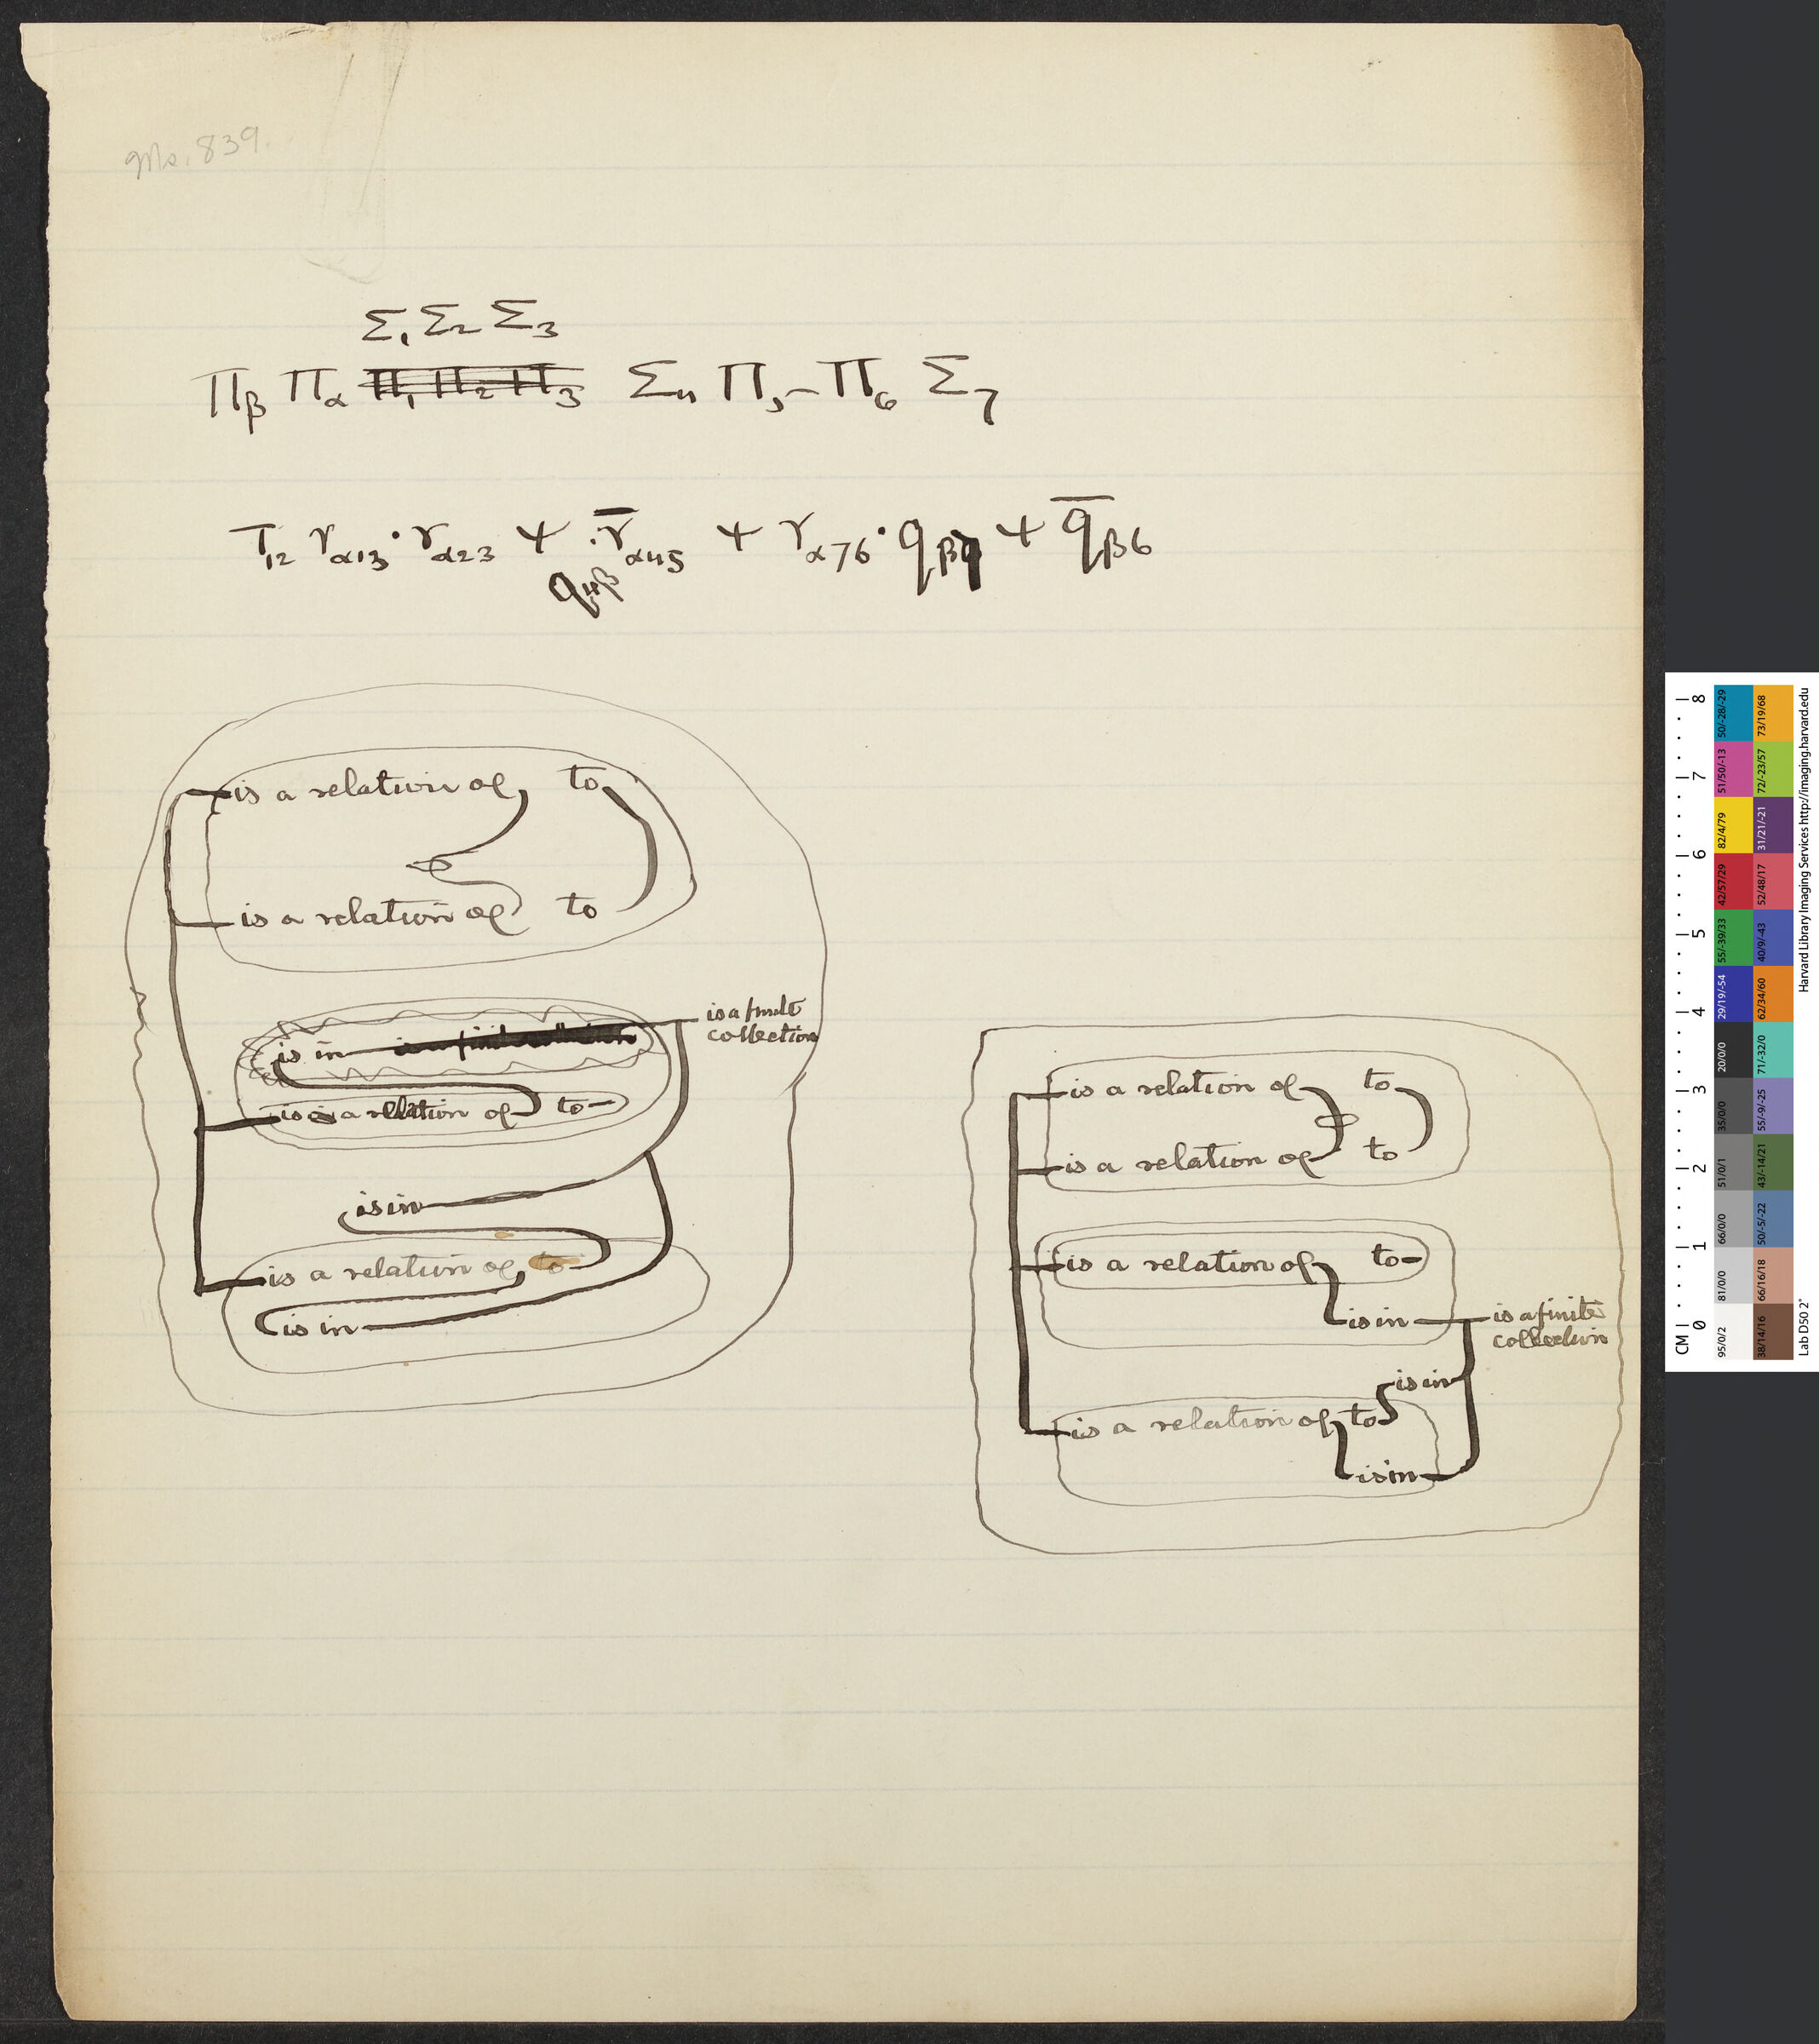 Ms. 839.
Σ₁ Σ₂ Σ₃
Πβ Πα Π₁ Π₂ Π₃ Σ₄ Π₅ Π₆ Σ₇
T₁₂ r_α13 · r_α23 ⩚ · r̄_α45 ⩚ r_α76 · q_β7 ⩚ q̄_β6
q_4β
is a relation of to
is a relation of to
is a finite
collection
is in
is a relation of to
is in
is a relation of to
is in
is a relation of to
is a relation of to
is a relation of to
is in is a finite
collection
is in
is a relation of to
is in
CM 0 1 2 3 4 5 6 7 8
95/0/2 81/0/0 66/0/0 51/0/1 35/0/0 20/0/0 29/19/-54 55/-39/33 52/57/29 82/4/79 51/50/-13 50/-28/-29
38/14/16 66/16/18 50/-5/-22 43/-14/21 55/-9/-25 71/-32/0 62/34/60 40/9/-43 52/48/17 31/21/-21 72/-23/57 73/19/68
Lab D50 2° Harvard Library Imaging Services http://imaging.harvard.edu